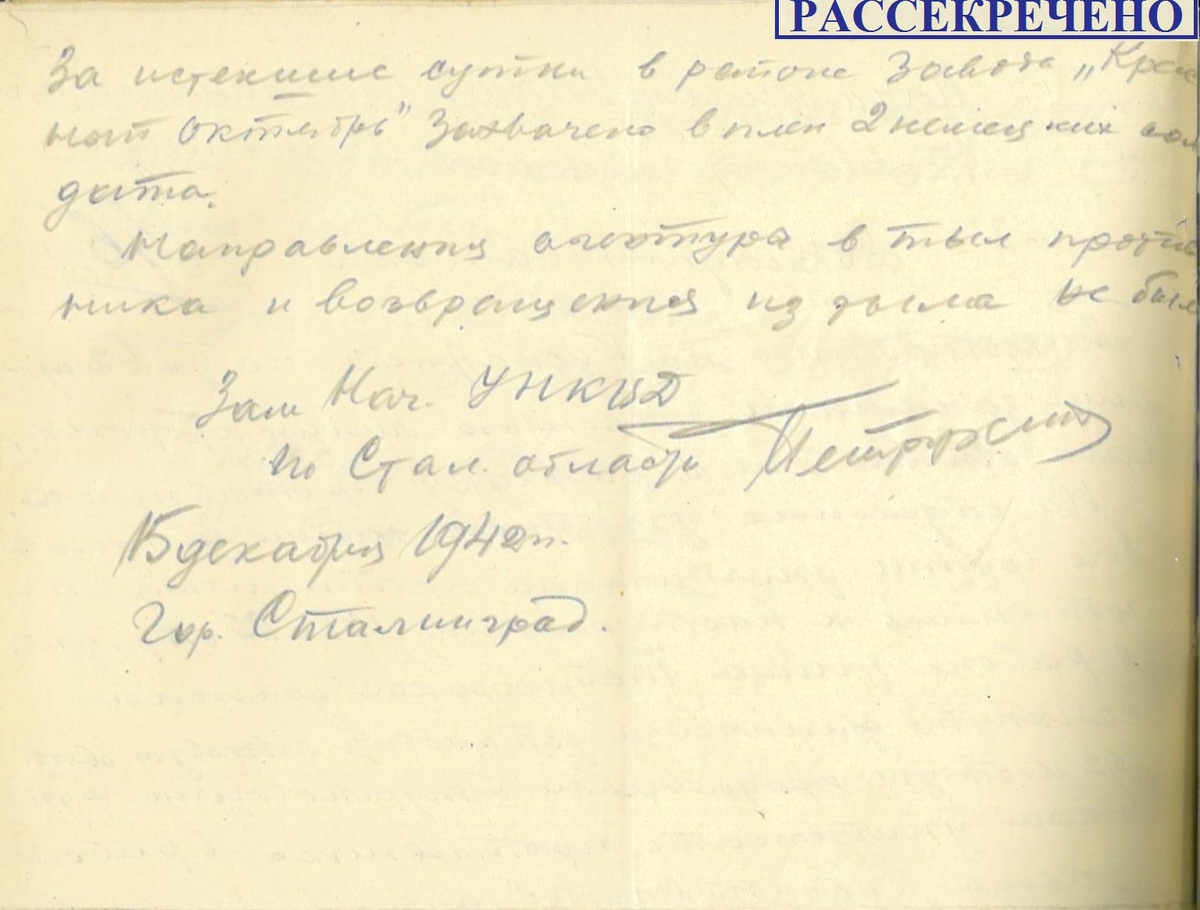 РАССЕКРЕЧЕНО
За истекшие сутки в районе завода „Крас
ный Октябрь" захвачено в плен 2 немецких сол
дата.
Направления агентура в тыл против
ника и возвращения из тыла не было
Зам Нач. УНКВД
по Стал. области Петраков
15 декабря 1942 г.
Гор. Сталинград.